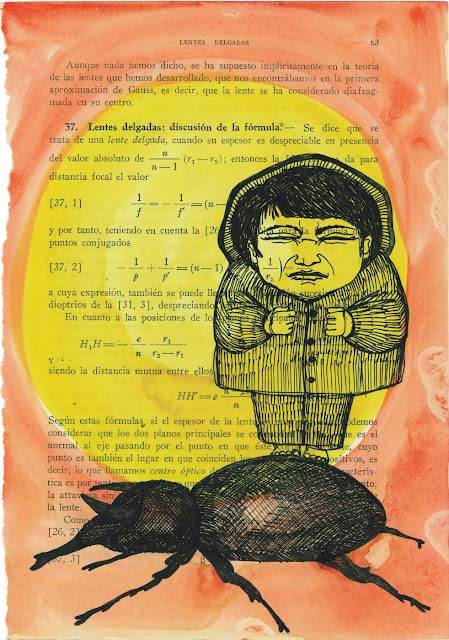 LENTES DELGADAS 63
Aunque nada hemos dicho, se ha supuesto implícitamente en la teoría
de las lentes que hemos desarrollado, que nos encontrábamos en la primera
aproximación de Gauss, es decir, que la lente se ha considerado diafrag-
mada en su centro.
37. Lentes delgadas: discusión de la fórmula. — Se dice que se
trata de una lente delgada, cuando su espesor es despreciable en presencia
del valor absoluto de n/(n—1) (r₁—r₂); entonces la da para
distancia focal el valor
[37, 1] 1/f = — 1/f' = (n—
y por tanto, teniendo en cuenta la [26
puntos conjugados
[37, 2] — 1/p + 1/p' = (n—1) 1/r₂
a cuya expresión, también se puede
dioptrios de la [31, 3], despreciando
En cuanto a las posiciones de los
H₁H = — e/n r₁/(r₂—r₁)
siendo la distancia mutua entre ellos
HH' = e n
Según estas fórmulas, si el espesor de la podemos
considerar que los dos planos principales se es el
normal al eje pasando por el punto en que este cuyo
punto es también el lugar en que coinciden los
decir, lo que llamamos centro óptico
tica es por tanto
la atraviesa sin
la lente.
Como
[26, 2]
[37, 3]